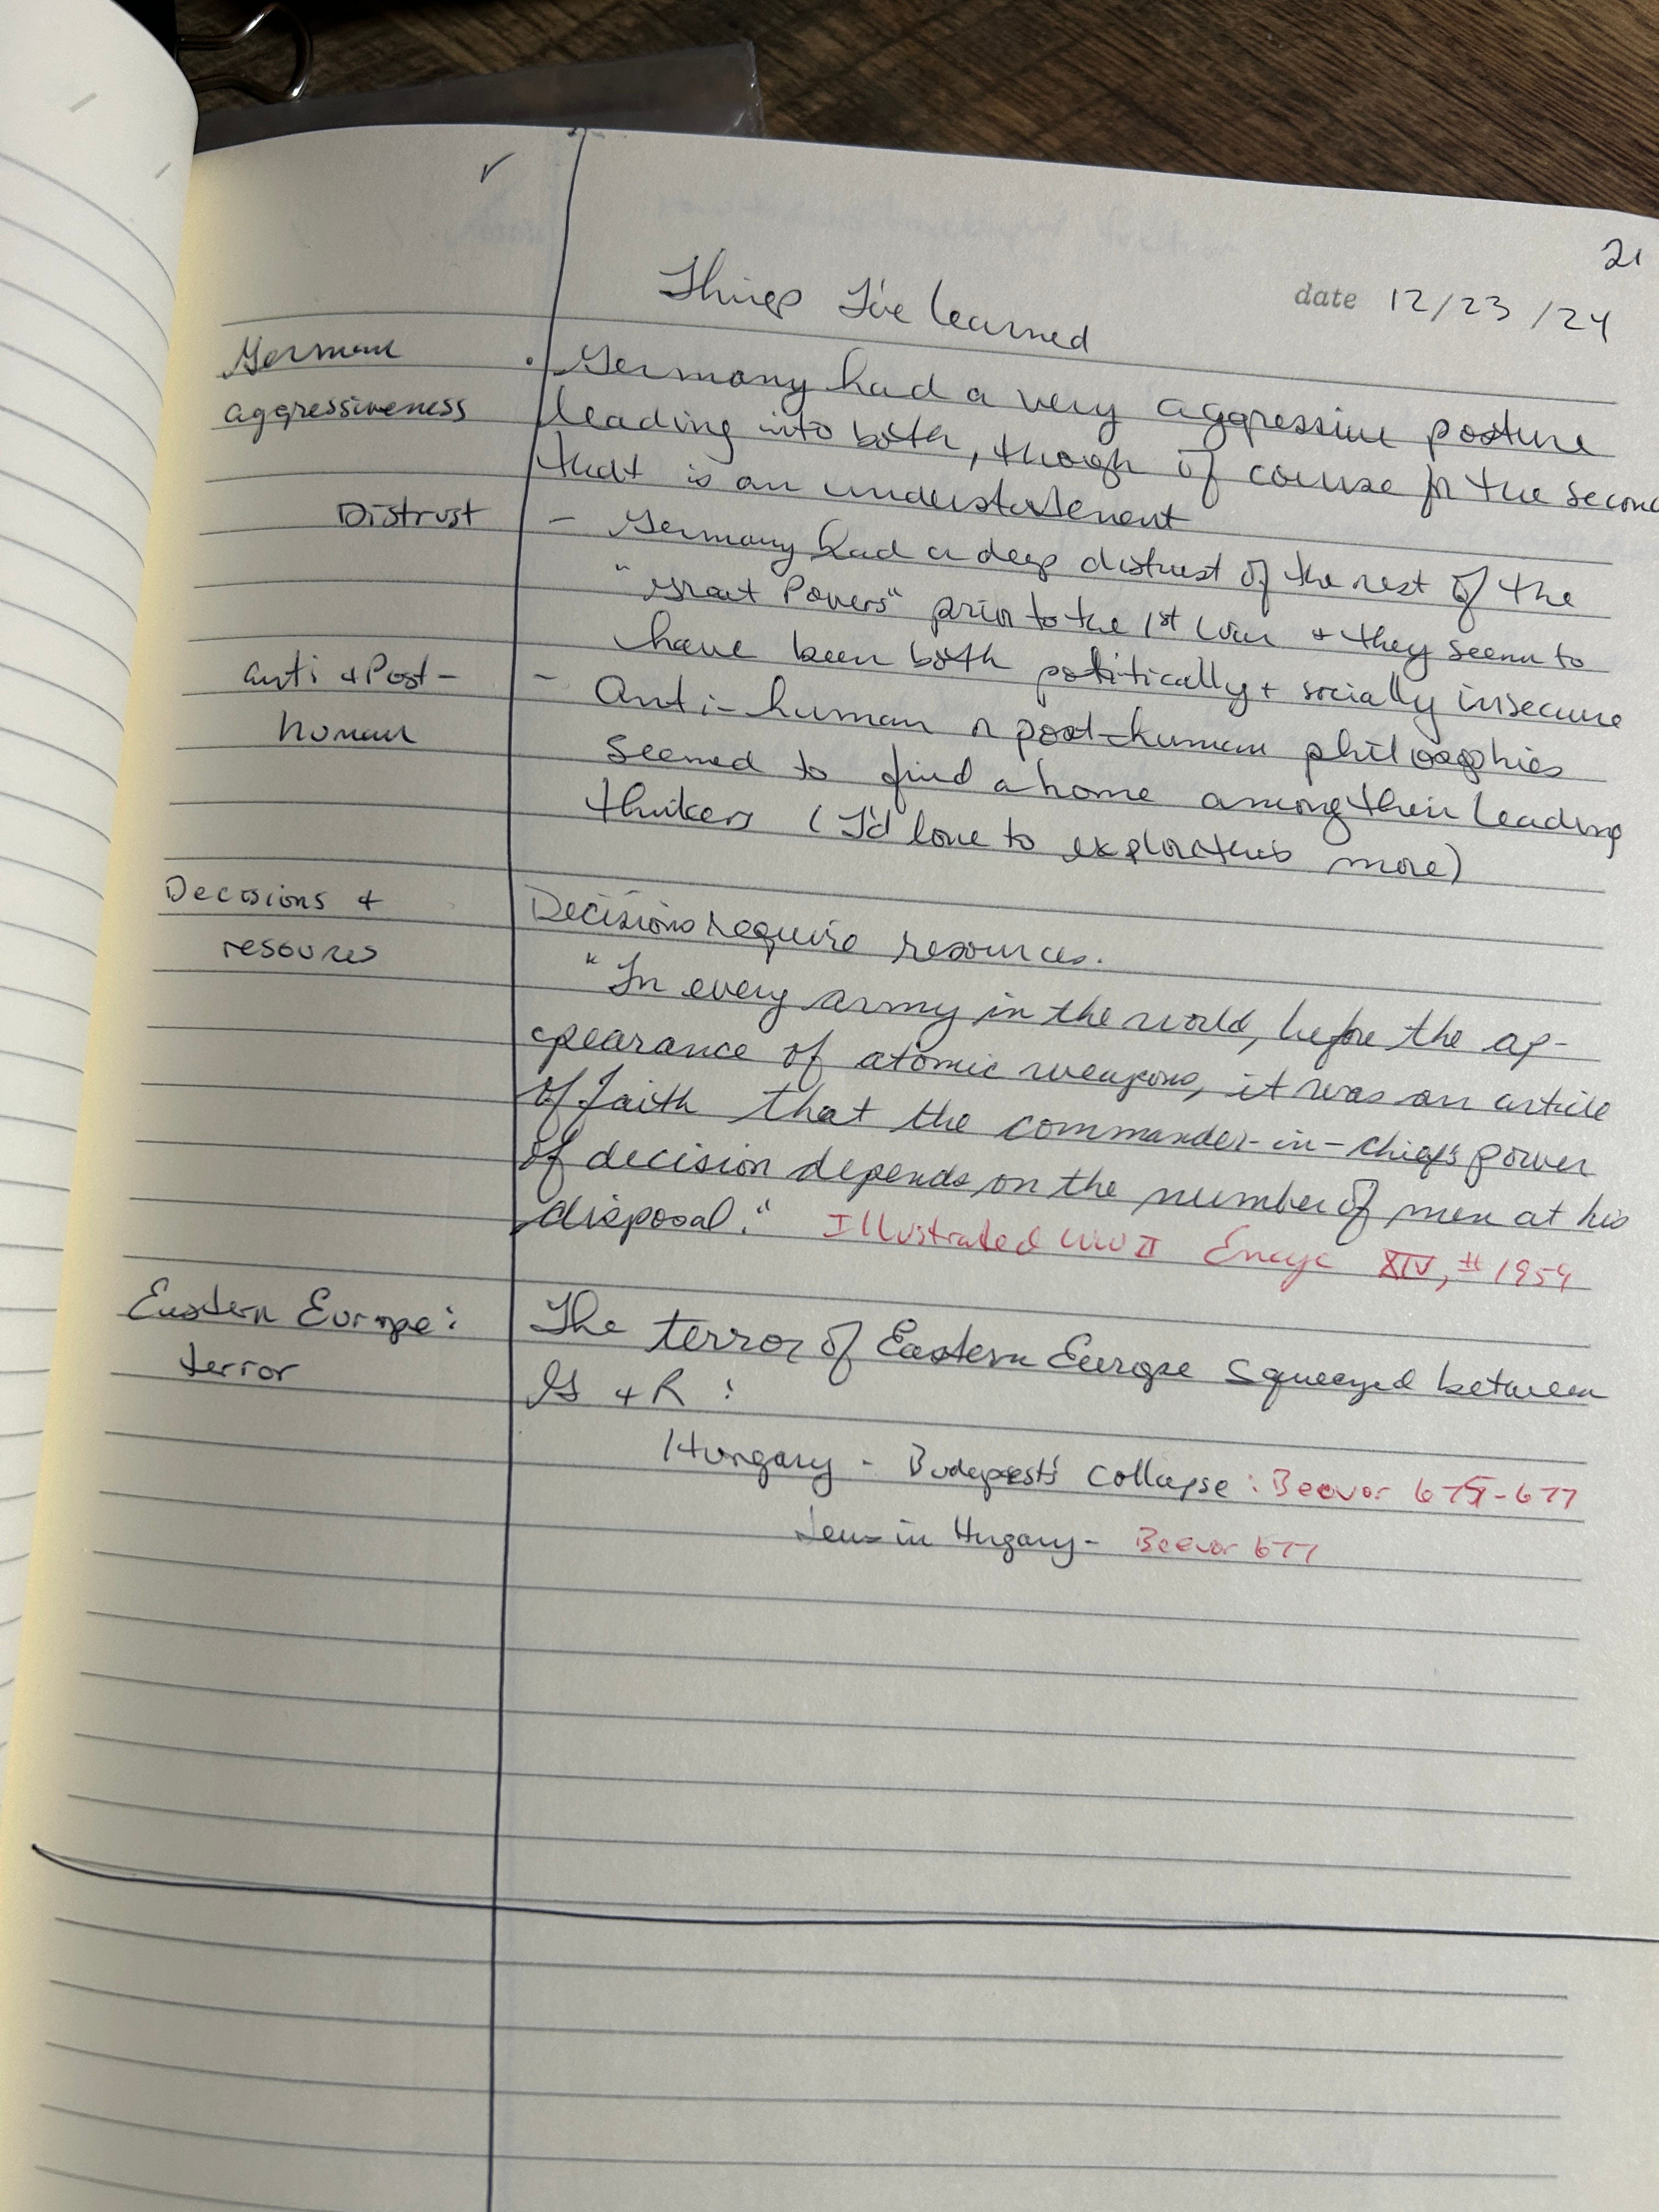 ✓
21
Things I've learned
date 12/23/24
German
aggressiveness
· Germany had a very aggressive posture
leading into both, though of course for the second
that is an understatement
Distrust
- Germany had a deep distrust of the rest of the
"Great Powers" prior to the 1st War + they seem to
have been both politically + socially insecure
anti + Post-
human
- Anti-human or post-human philosophies
seemed to find a home among their leading
thinkers (I'd love to explore this more)
Decisions +
resources
Decisions require resources.
"In every army in the world, before the ap-
pearance of atomic weapons, it was an article
of faith that the commander-in-chief's power
of decision depends on the number of men at his
disposal." Illustrated WWII Encyc XIV, # 1954
Eastern Europe:
terror
The terror of Eastern Europe squeezed between
G + R :
Hungary - Budapest's collapse: Beevor 675-677
Jews in Hugary - Beevor 677